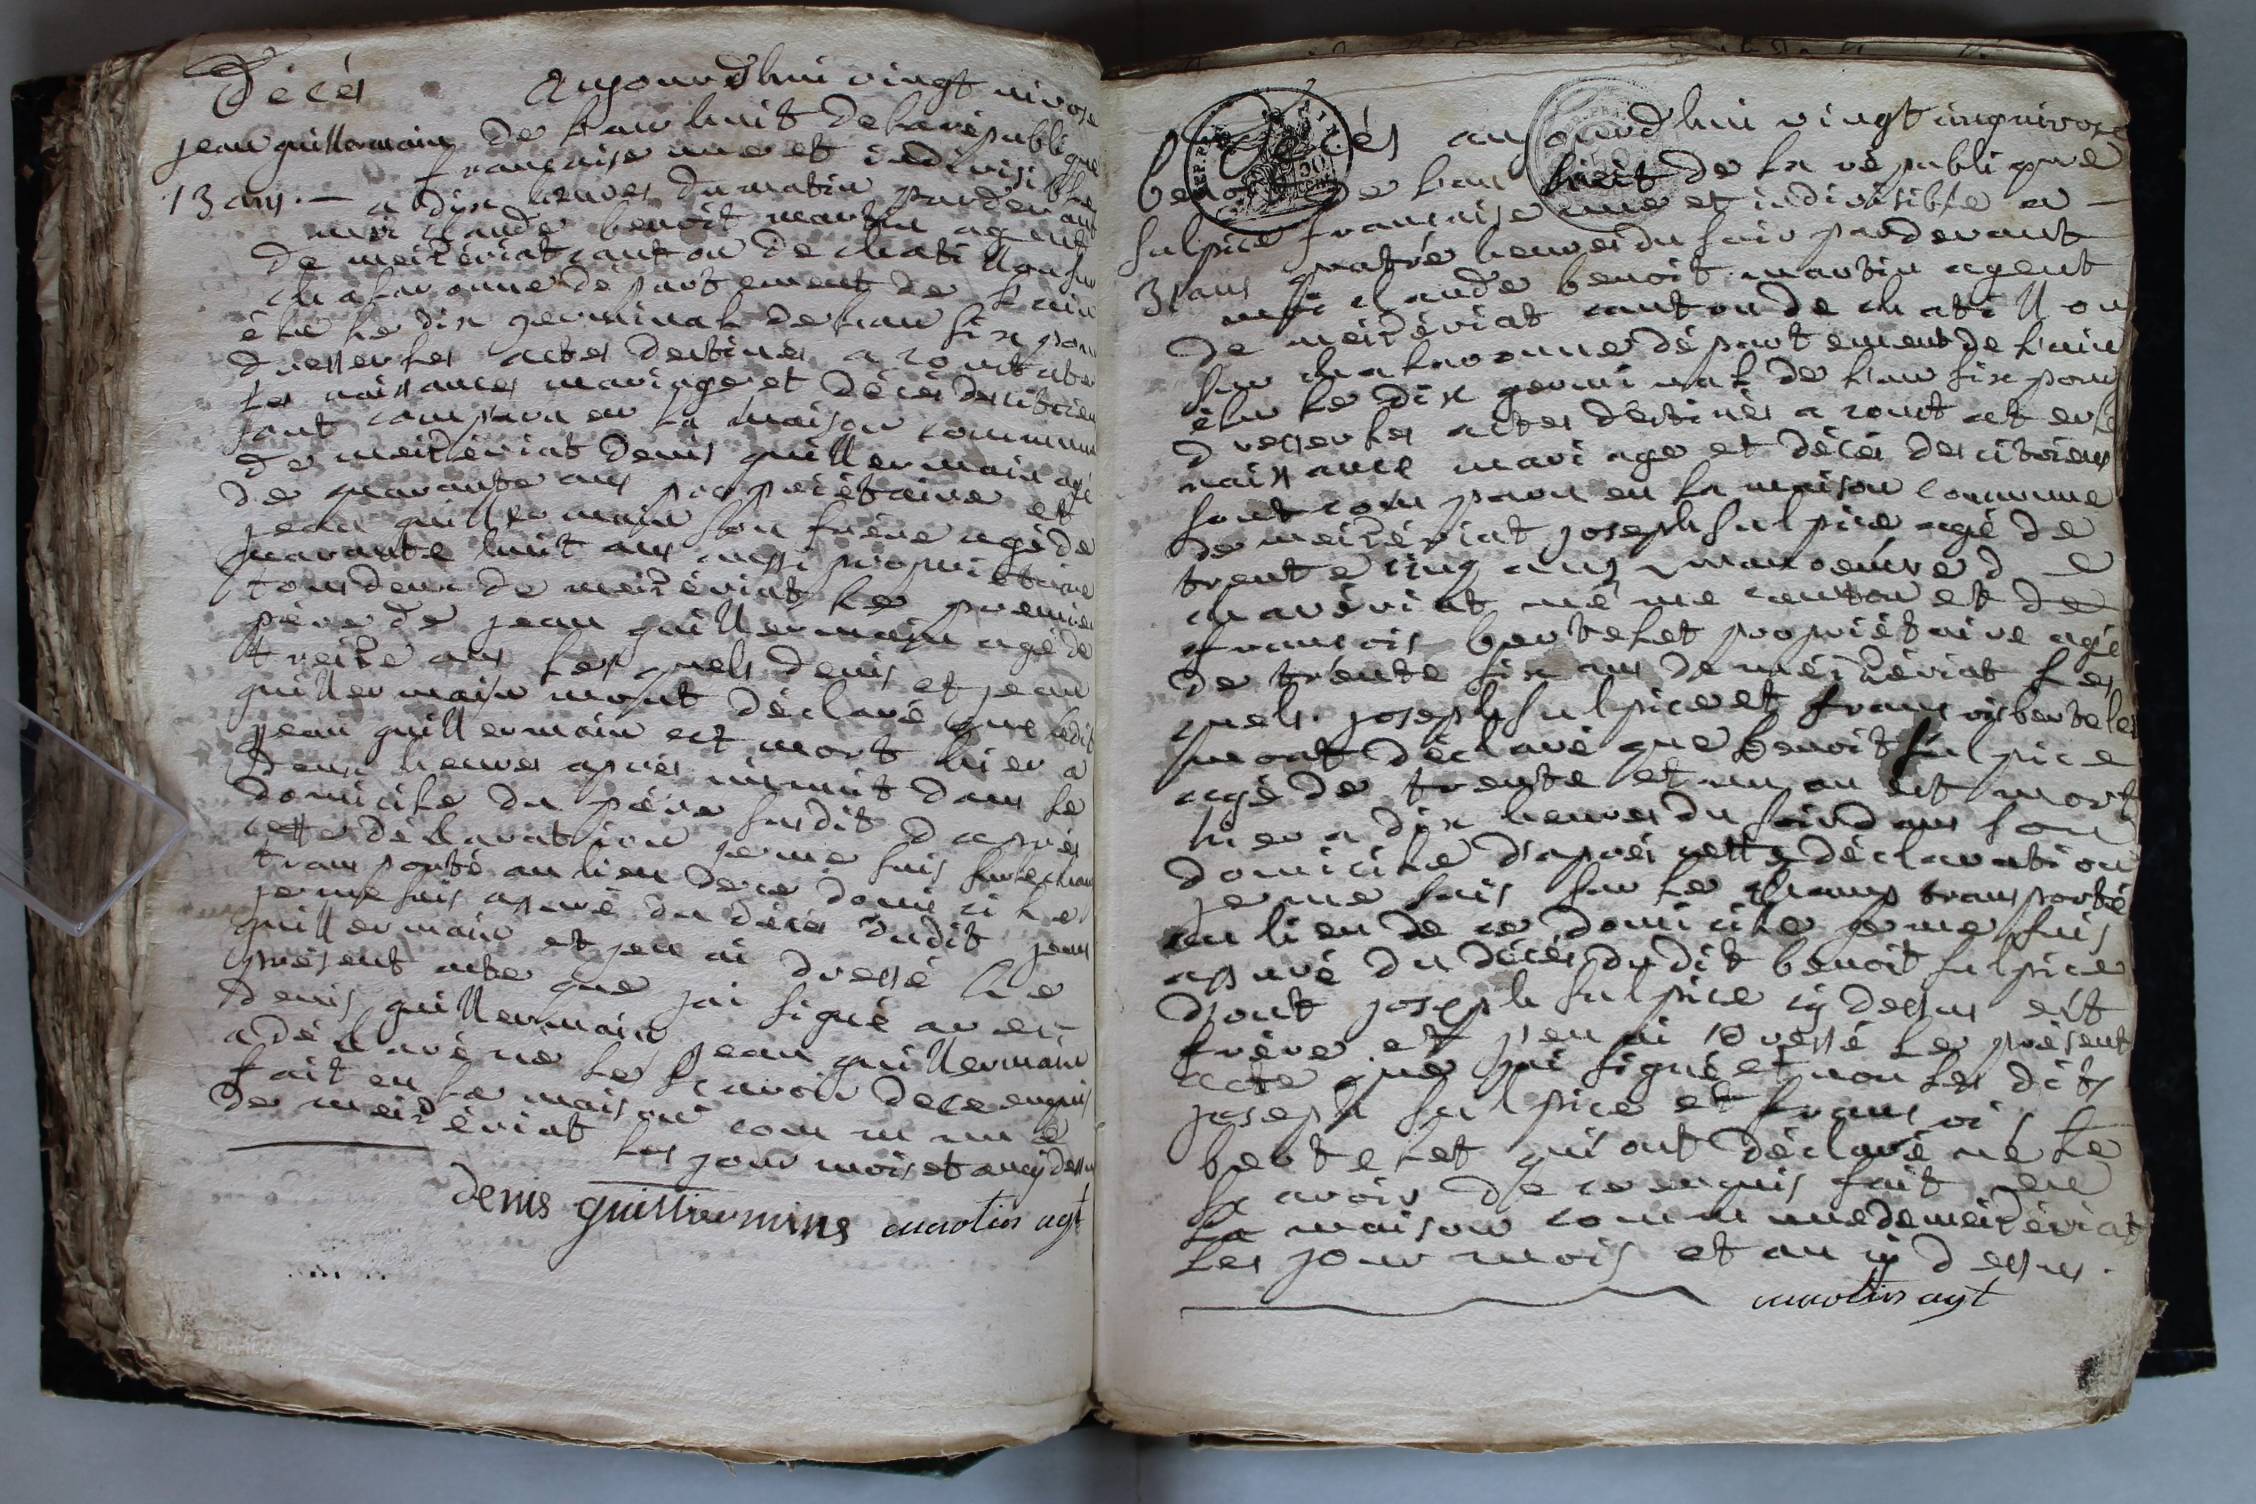 Décés
jean guillermain
13 ans. —
aujourdhui vingt nivose
de l'an huit de la republique
française une et indivisible
a dix heures du matin pardevant
moi claude benoit martin agent
de meizériat canton de chatillon sur
chalaronne département de l'ain
élu le dix germinal de l'an six pour
dresser les actes destinés a constater
les naissances mariage et décés des citoiens
sont comparu en la maison commune
de meizériat denis guillermain agé
de quarante ans propriétaire et
jean guillermain son frère agé de
quarante huit ans aussi propriétaire
tous deux de meizériat le premier
père de jean guillermain agé de
treize ans lesquels denis et jean
guillermain mont déclaré que ledit
jean guillermain est mort hier a
deux heures aprés minuit dans le
domicile du père susdit daprés
cette déclaration je me suis sur le champ
transporté au lieu de ce domicile
je me suis assuré du décés dudit jean
guillermain et jen ai dressé le
présent acte que jai signé avec
denis guillermain jean guillermain
a déclaré ne le scavoir de ce enquis
fait en la maison commune
de meizériat les jour mois et an cy dessus
denis guilliermins martin agt
Décés
benoit
sulpice
31 ans
aujourdhui vingt cinq nivose
de l'an huit de la république
française une et indivisible a —
quatre heures du soir pardevant
moi claude benoit martin agent
de meizériat canton de chatillon
sur chalaronne département de l'ain
élu le dix germinal de l'an six pour
dresser les actes destinés a constater les
naissance mariage et décés des citoiens
sont comparu en la maison commune
de meizériat joseph sulpice agé de
trente cinq ans manoeuvre de
chavériat méme canton et de
francois bertelet propriétaire agé
de trente six ans de meizériat les
quels joseph sulpice et francois bertelet
mont déclaré que benoit sulpice
agé de trente et un an est mort
hier a dix heures du soir dans son
domicile d'aprés cette déclaration
je me suis sur le champ transporté
au lieu de ce domicile je me suis
assuré du décés dudit benoit sulpice
dont joseph sulpice cy dessus est
frère et j'en ai dressé le présent
acte que jai signé et non les dits
joseph sulpice et francois
bertelet qui ont déclaré ne le
scavoir de ce enquis fait en
la maison commune de meizériat
les jour mois et an cy dessus.
martin agt